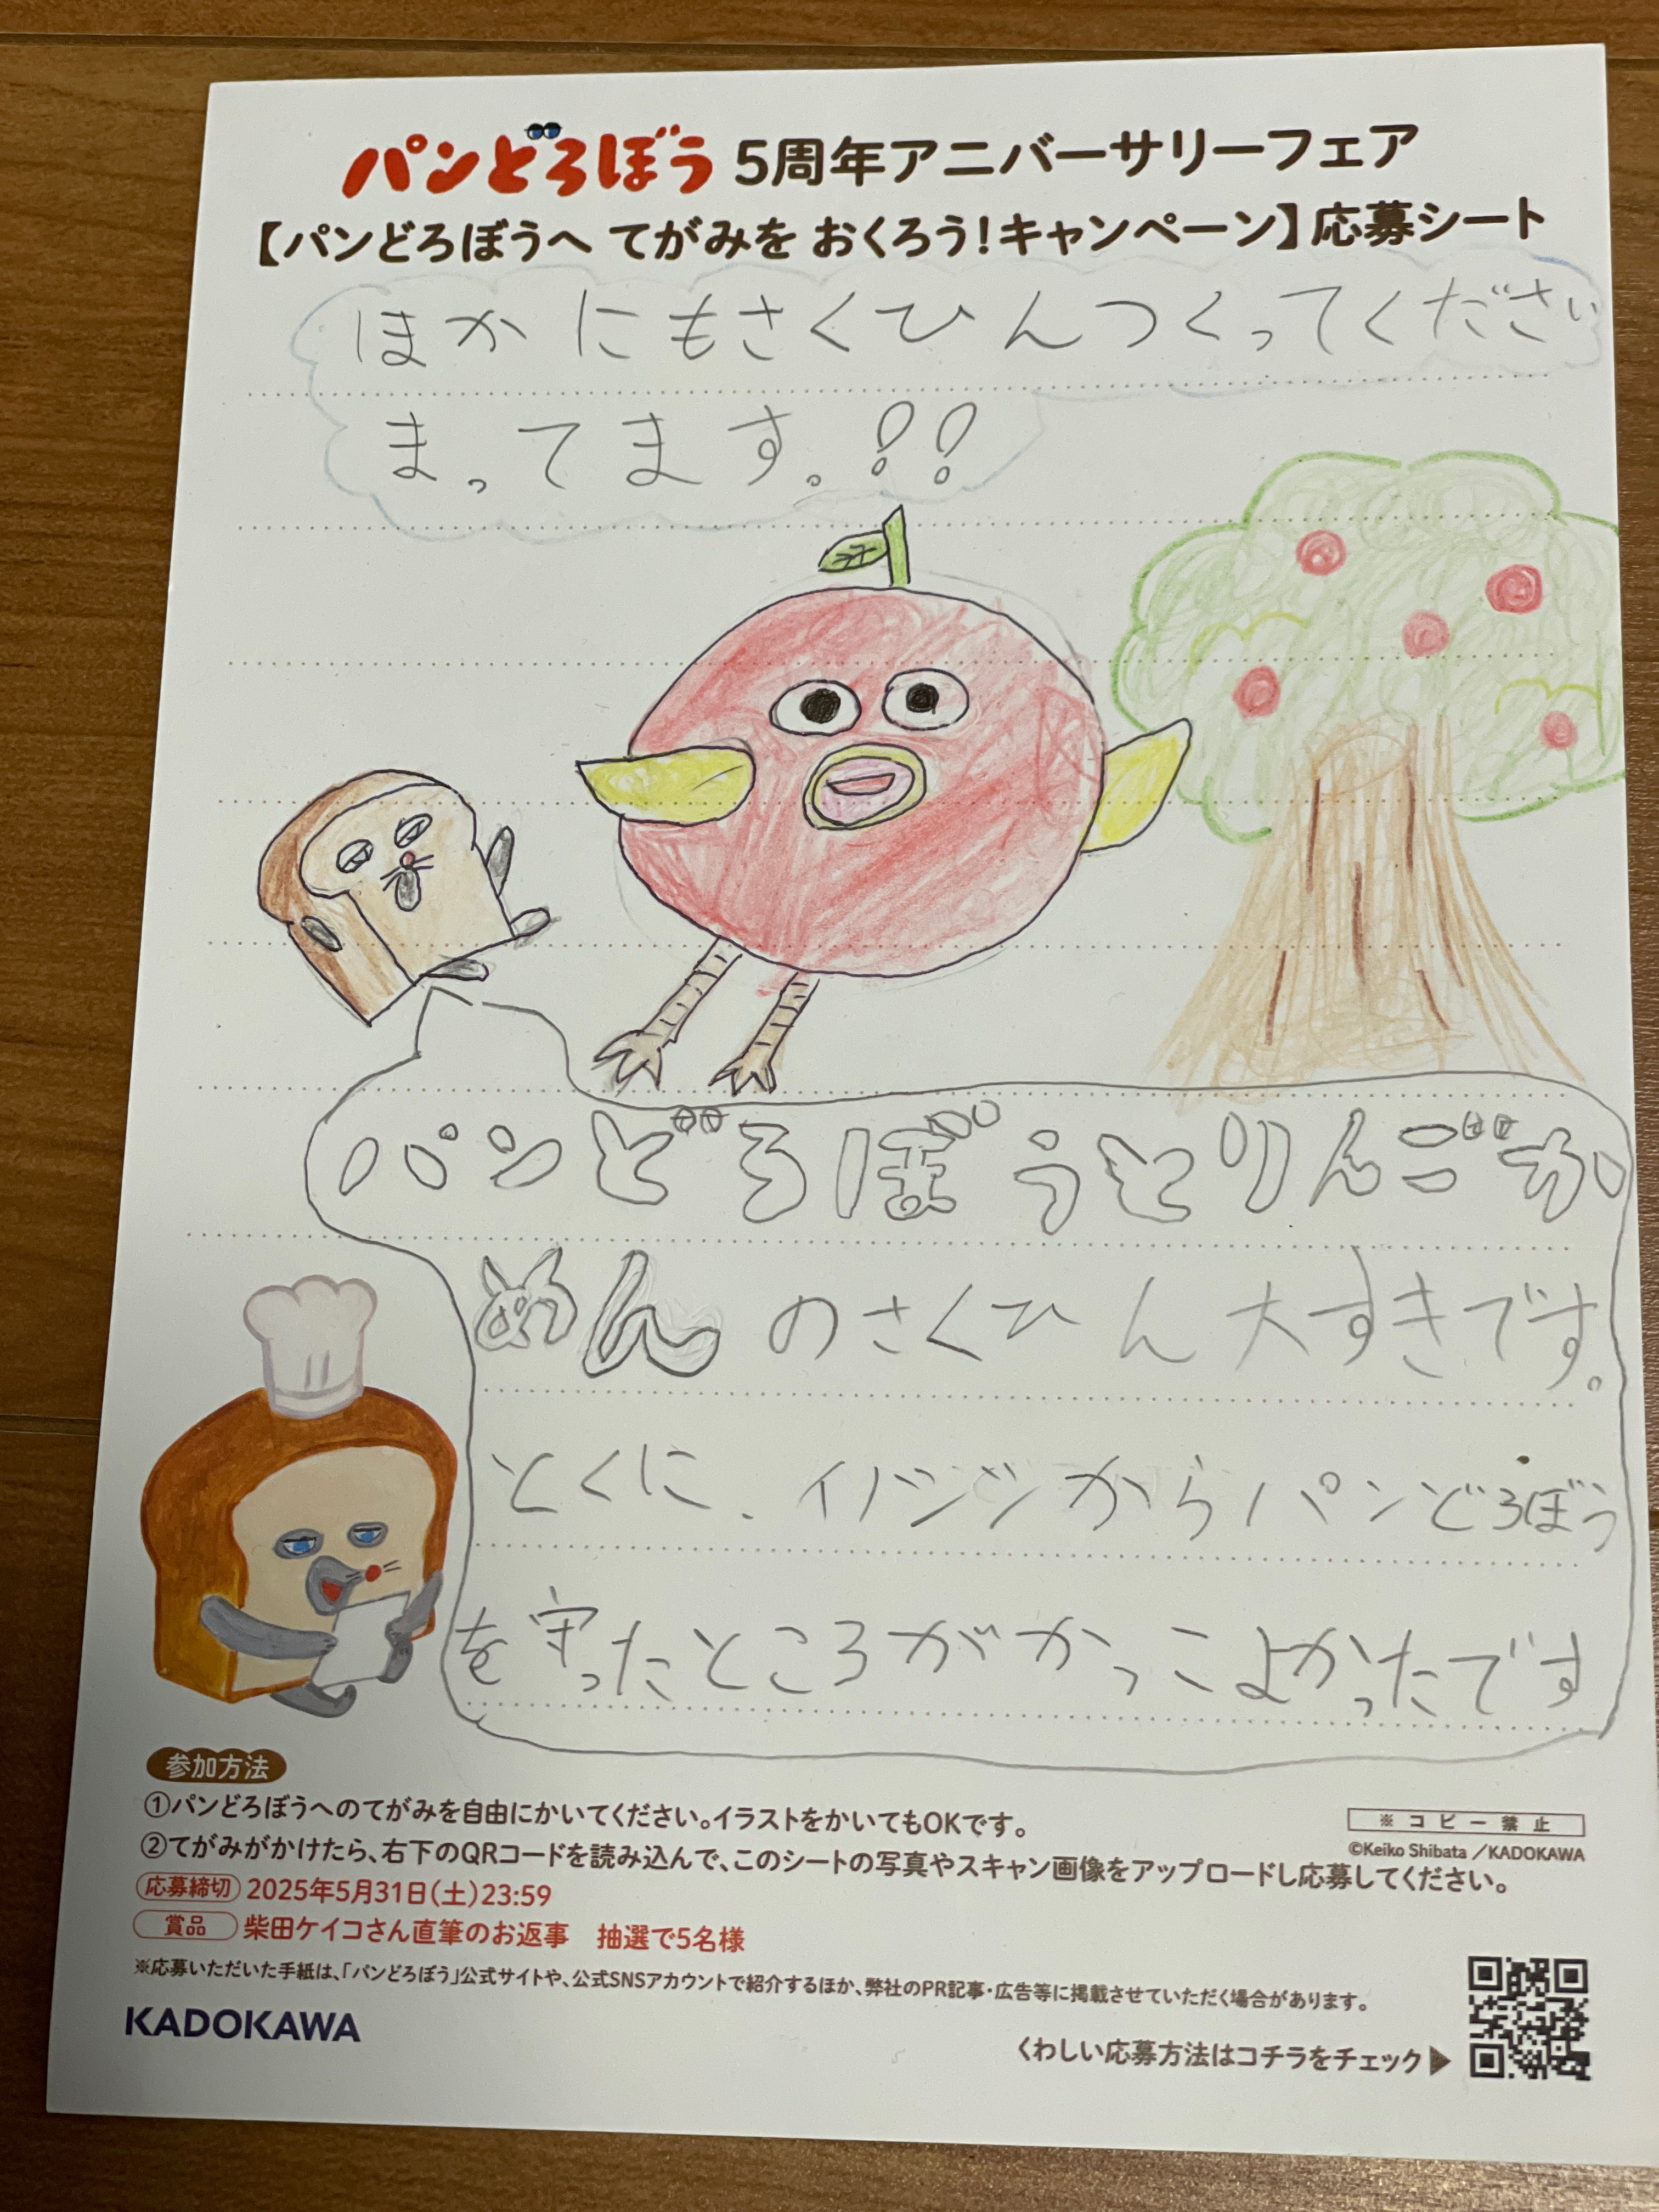 パンどろぼう 5周年アニバーサリーフェア
【パンどろぼうへ てがみを おくろう!キャンペーン】応募シート
ほかにもさくひんつくってください
まってます。!!
パンどろぼうとりんごか
めんのさくひん大すきです。
とくに、イノシシからパンどろぼう
を守ったところがかっこよかったです
参加方法
①パンどろぼうへのてがみを自由にかいてください。イラストをかいてもOKです。
②てがみがかけたら、右下のQRコードを読み込んで、このシートの写真やスキャン画像をアップロードし応募してください。
※コピー禁止
©Keiko Shibata /KADOKAWA
応募締切 2025年5月31日(土)23:59
賞品 柴田ケイコさん直筆のお返事 抽選で5名様
※応募いただいた手紙は、「パンどろぼう」公式サイトや、公式SNSアカウントで紹介するほか、弊社のPR記事・広告等に掲載させていただく場合があります。
KADOKAWA
くわしい応募方法はコチラをチェック▶